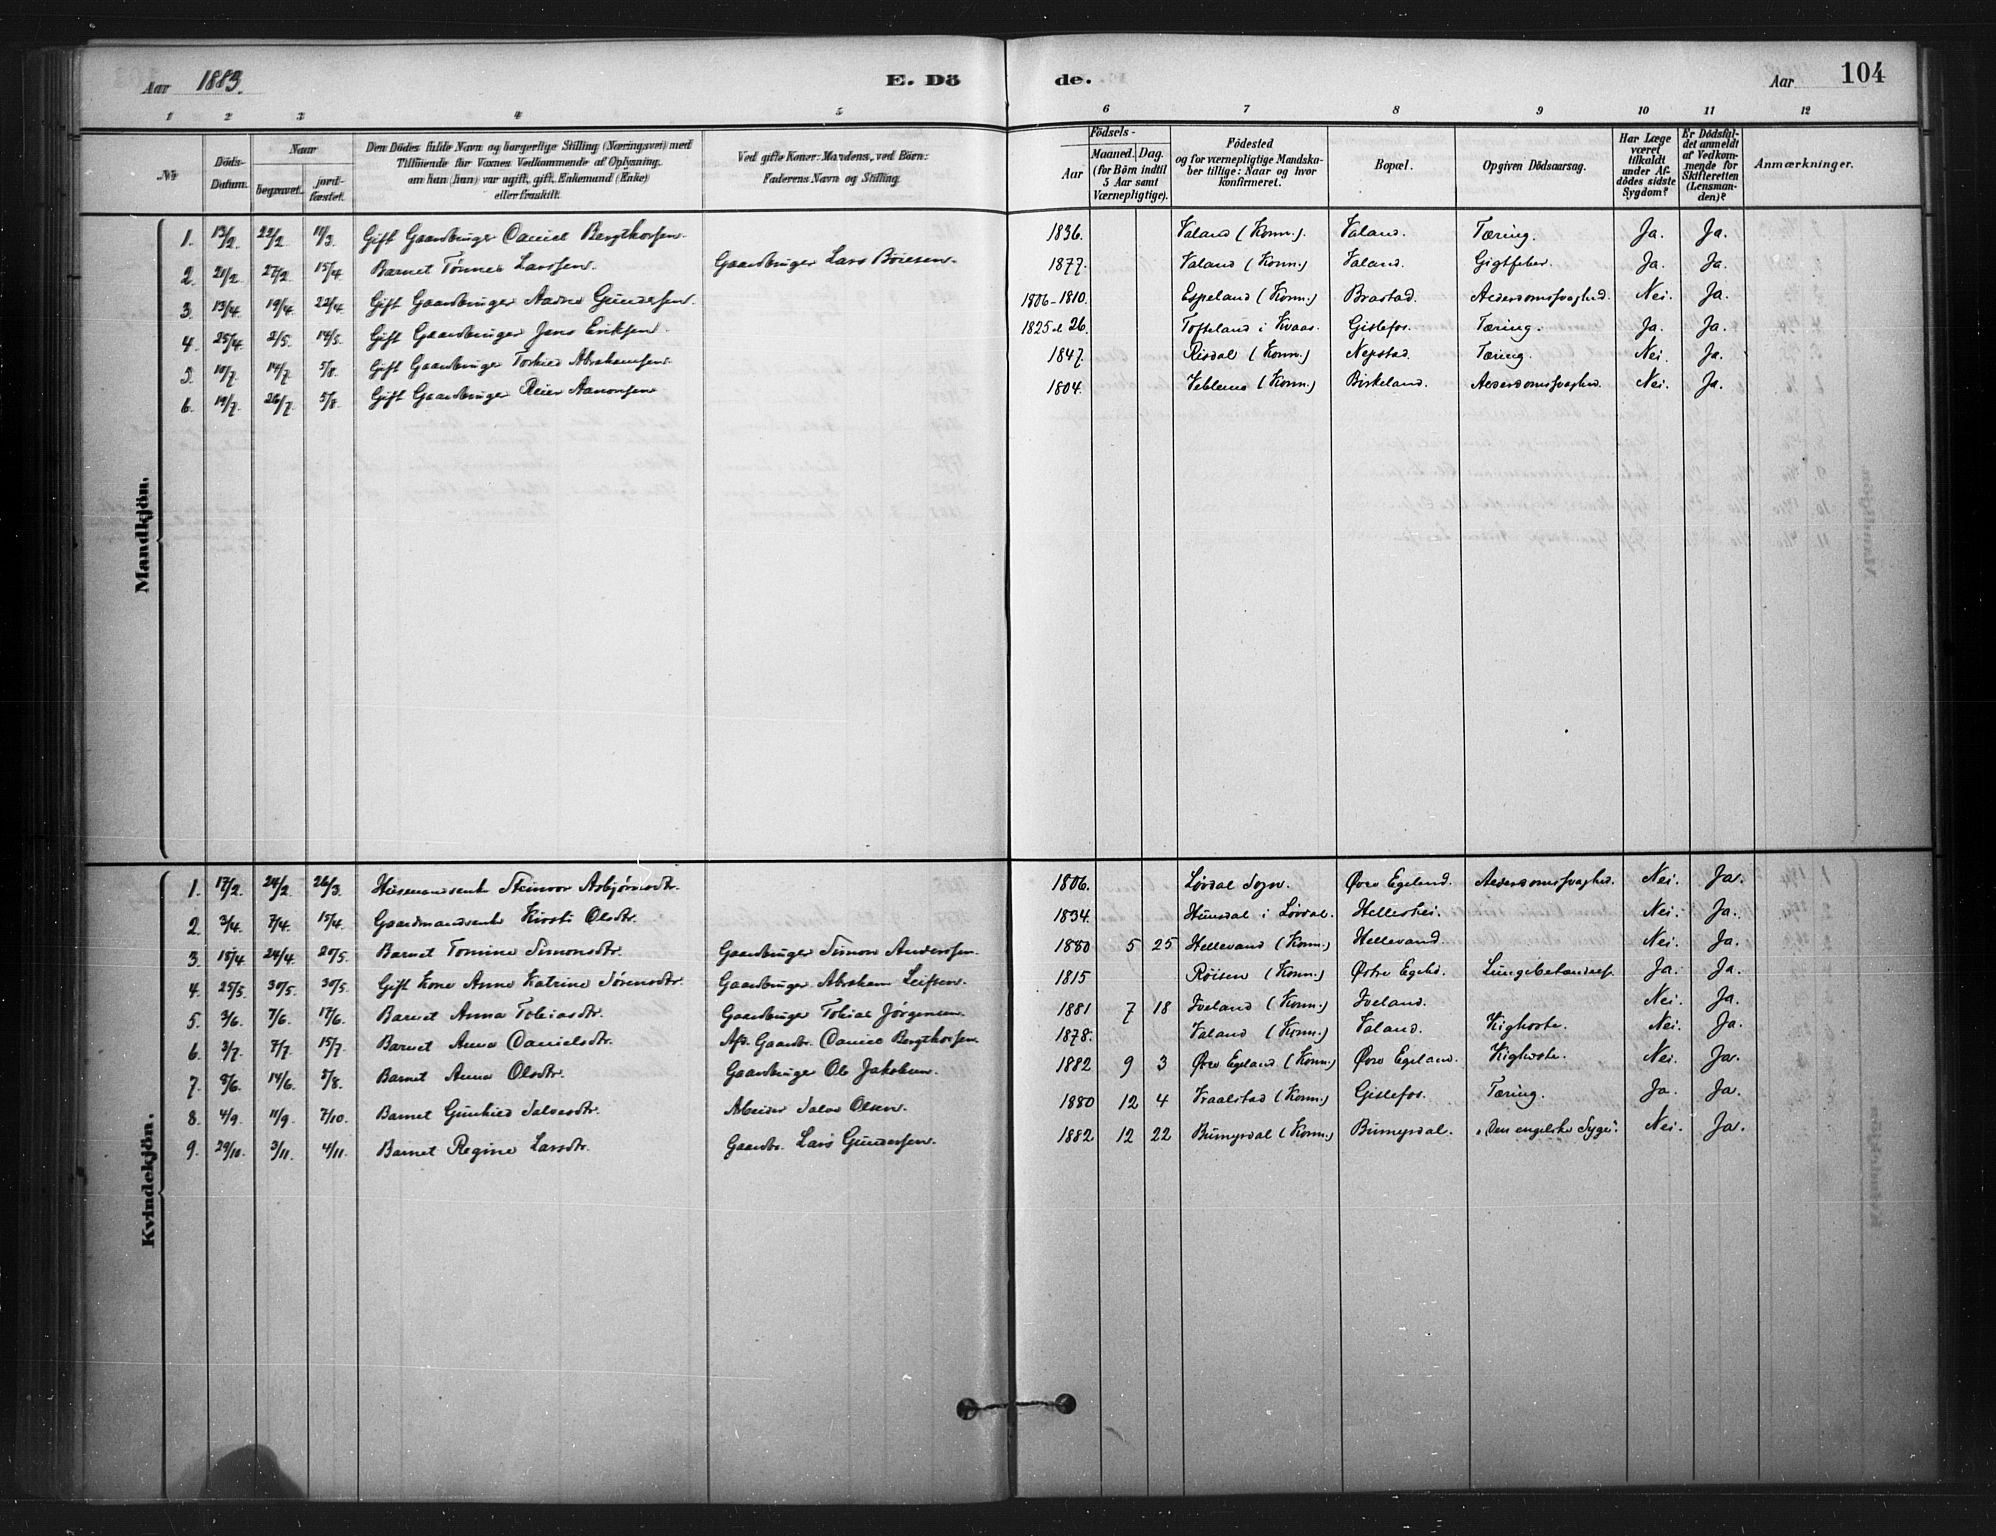 Aar 1883.
E. Dö
de.
Aar 104
1 2 3 4 5 6 7 8 9 10 11 12
№
Döds-Datum.
Naar
begravet.
jordfæstet.
Den Dödes fulde Navn og borgerlige Stilling (Næringsvei) med
Tilföiende for Voxnes Vedkommende af Oplysning,
om han (hun) var ugift, gift, Enkemand (Enke)
eller fraskilt.
Ved gifte Koner: Mandens, ved Börn:
Faderens Navn og Stilling.
Födsels-
Aar
Maaned. Dag.
(for Börn indtil
5 Aar samt
Værnepligtige).
Födested
og for værnepligtige Mandska-
ber tillige: Naar og hvor
konfirmeret.
Bopæl.
Opgiven Dödsaarsag.
Har Læge
været
tilkaldt
under Af-
dödes sidste
Sygdom?
Er Dödsful-
det anmeldt
af Vedkom-
mende for
Skifteretten
(Lensman-
den)?
Anmærkninger.
Mandkjön.
1. 13/2. 22/2. 11/3. Gift Gaardbruger Daniel Bergthorsen. 1836. Valand (Konn.). Valand. Tæring. Ja. Ja.
2. 21/2. 27/2. 15/4. Barnet Tønnes Larssen. Gaardbruger Lars Boiesen. 1877. Valand (Konn.) Valand. Gigtfeber. Ja. Ja.
3. 13/4. 19/4. 22/4. Gift Gaardbruger Aadne Gundersen. 1806-1810. Espeland (Konn.) Brastad. Alderdomssvaghed. Nei. Ja.
4. 25/4. 2/5. 14/5. Gift Gaardbruger Jens Eriksen. 1825 el 26. Tofteland i Kvaas. Gislefos. Tæring. Ja. Ja.
5. 10/7. 14/7. 5/8. Gift Gaardbruger Torkied Abrahamsen. 1847. Risdal (Konn.) Nepstad. Tæring. Nei. Ja.
6. 19/7. 26/7. 5/8. Gift Gaardbruger Reier Aanonsen 1804. (Konn.) Birkeland. Alderdomssvaghed. Nei. Ja.
Kvindekjön.
1. 17/2. 24/2. 26/3. Husmandsenke Steinvor Asbjørnsdtr. 1806. Løvdal Sogn. Øvre Egeland. Alderdomssvaghed. Nei. Ja.
2. 3/4. 7/4. 15/4. Gaardmandsenke Kirsti Olsdtr. 1834. Hunsdal i Løvdal. Helleshei. Nei. Ja.
3. 18/4. 24/4. 20/5. Barnet Tomine Simonsdtr. Gaardbruger Simon Anderssen. 1880 5 25 Hellevand (Konn.) Hellevand Nei. Ja.
4. 25/5. 30/5. 30/5. Gift Kone Anne Katrine Sørensdtr. Gaardbruger Abraham Leifsen. 1815 Røisen (Konn.) Østre Egeld. Lungebetændelse. Ja. Ja.
5. 3/6. 7/6. 17/6. Barnet Anna Tobiasdtr. Gaardbruger Tobias Jørgensen. 1881 7 18 Iveland (Konn.) Iveland. Nei. Ja.
6. 3/7. 7/7. 15/7. Barnet Anne Danielsdtr. Afd. Gaardbr. Daniel Bergthorsen. 1878. Valand (Konn.) Valand. Kighoste. Nei. Ja
7. 8/6. 14/6. 5/8. Barnet Anne Olsdtr. Gaardbruger Ole Jakobsen. 1882 9 3 Øvre Egeland (Konn.) Øvre Egeland. Kighoste. Nei. Ja.
8. 4/9. 11/9. 7/10. Barnet Gunhild Salvesdtr. Arbeider Salve Olsen. 1880 12 4 Kraalstad (Konn.) Gislefos. Tæring. Ja. Ja.
9. 29/10. 3/11. 4/11. Barnet Regine Larsdtr. Gaardbr. Lars Gundersen. 1882 12 22 Bumyrdal (Konn.) Bumyrdal. "Den engelske Syge". Nei. Ja.